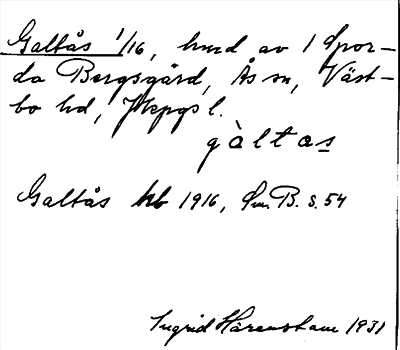 Galtås 1/16, hmd av 1 Spor-
da Bergsgård, Ås sn, Väst-
bo hd, Jkpgs l.
gàltas
Galtås hb 1916, B. s. 54
Ingrid Härenstam 1931